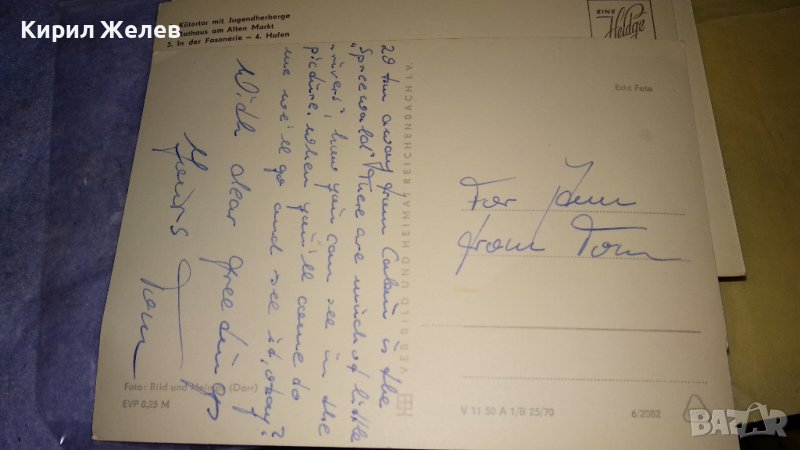 Кирил Желев
2. Kütertor mit Jugendherberge
Rathaus am Alten Markt
3. In der Fasanerie – 4. Hafen
EINE
Heldge
20 km away from Calau is the
„Spreewald". There are much of little
„rivers", how you can see in the
picture. When you'll come to
me we'll go and see it, okay?
With dear greetings
Yours Tom
VEB BILD UND HEIMAT REICHENBACH I.V.
Echt Foto
For Jenn
from Tom
Foto: Bild und Heimat (Darr)
EVP 0,25 M
V 11 50 A 1/B 25/70
6/2082
BAZAR